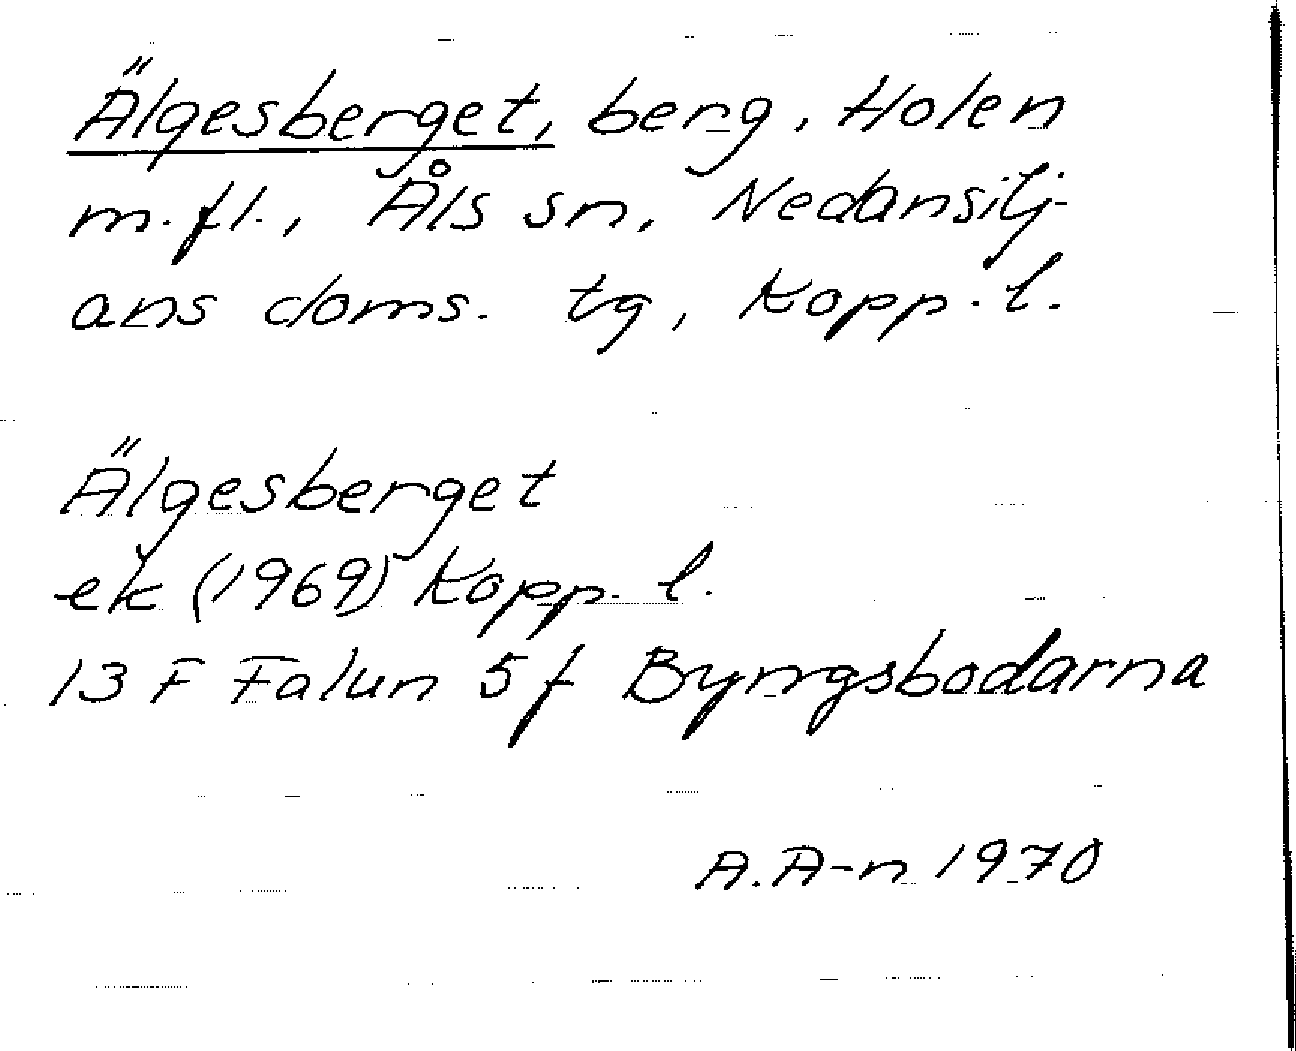 Älgesberget, berg, Holen
m.fl., Åls sn, Nedansilj-
ans doms. tg, Kopp. l.
Älgesberget
ek (1969) Kopp. l.
13 F Falun 5 f Byngsbodarna
A. A-n 1970